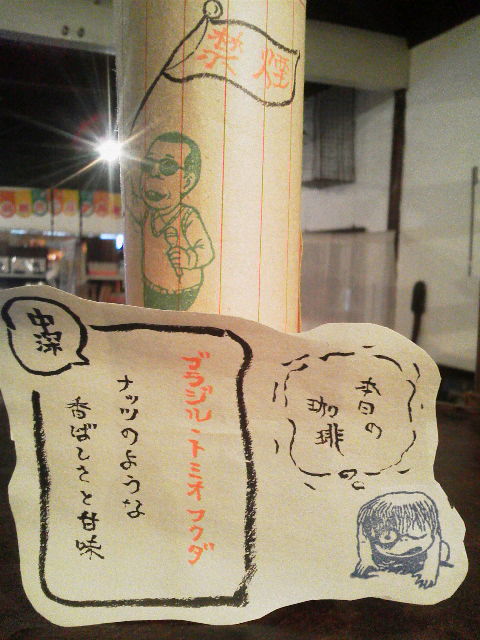 禁煙
本日の
珈琲
中深
ブラジル・トミオフクダ
ナッツのような
香ばしさと甘味